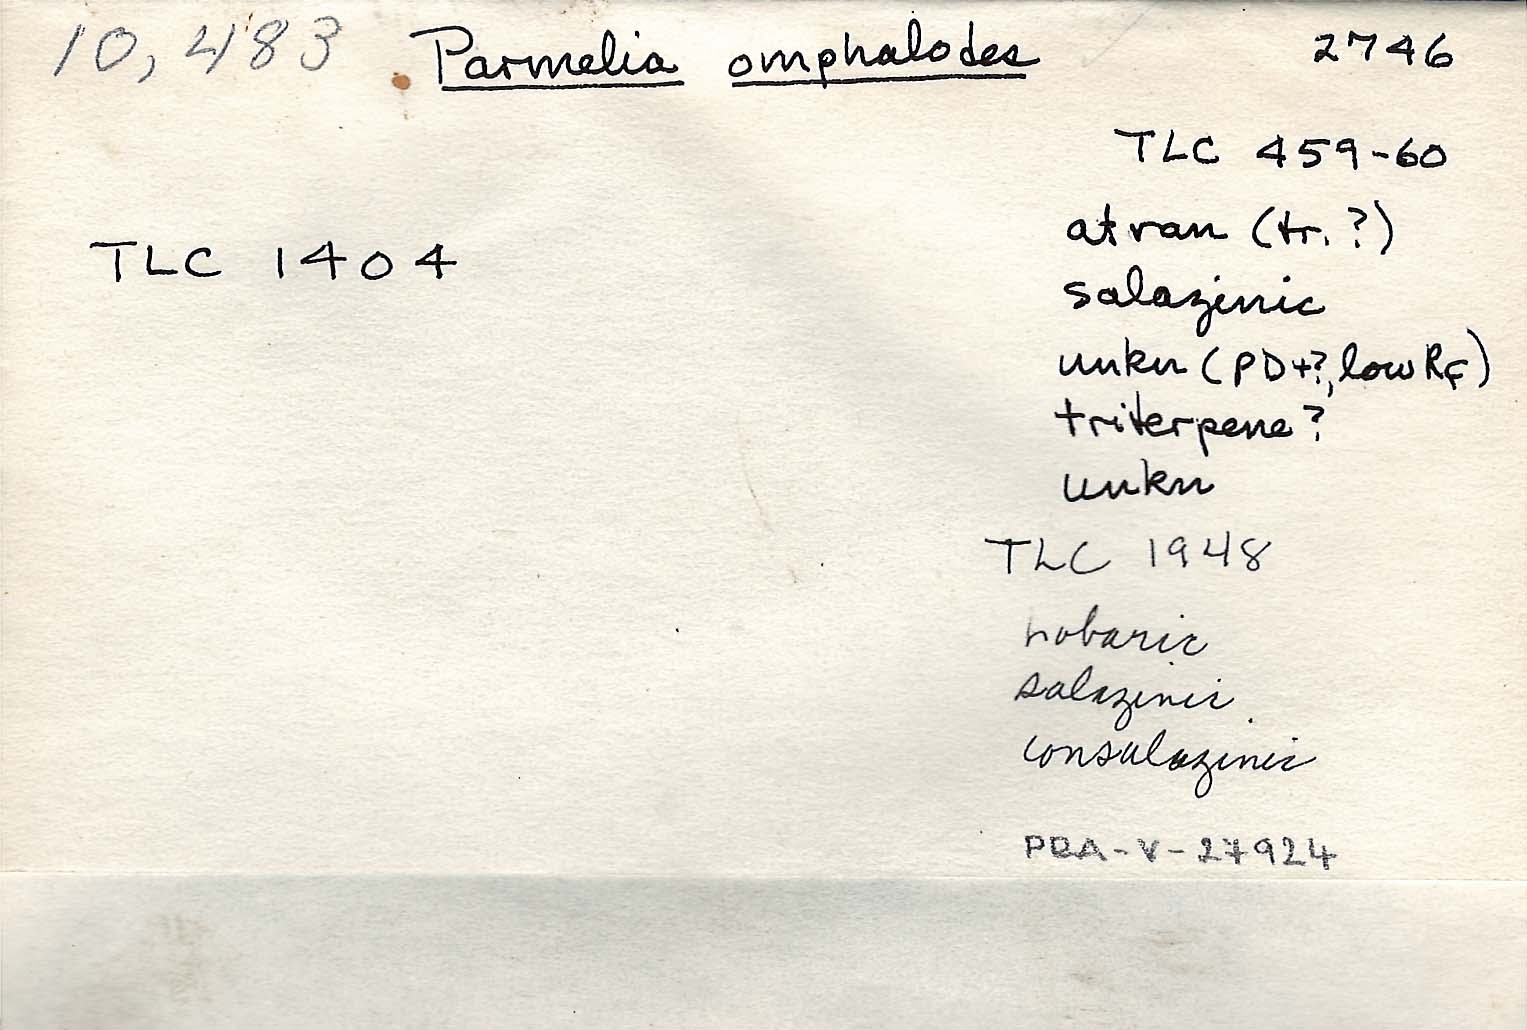 10,483 Parmelia omphalodes 2746
TLC 459-60
atran (tr.?)
TLC 1404
salazinic
unkn (PD+?, low Rf)
triterpene?
unkn
TLC 1948
lobaric
salazinic
consalazinic
PRA-V-27924